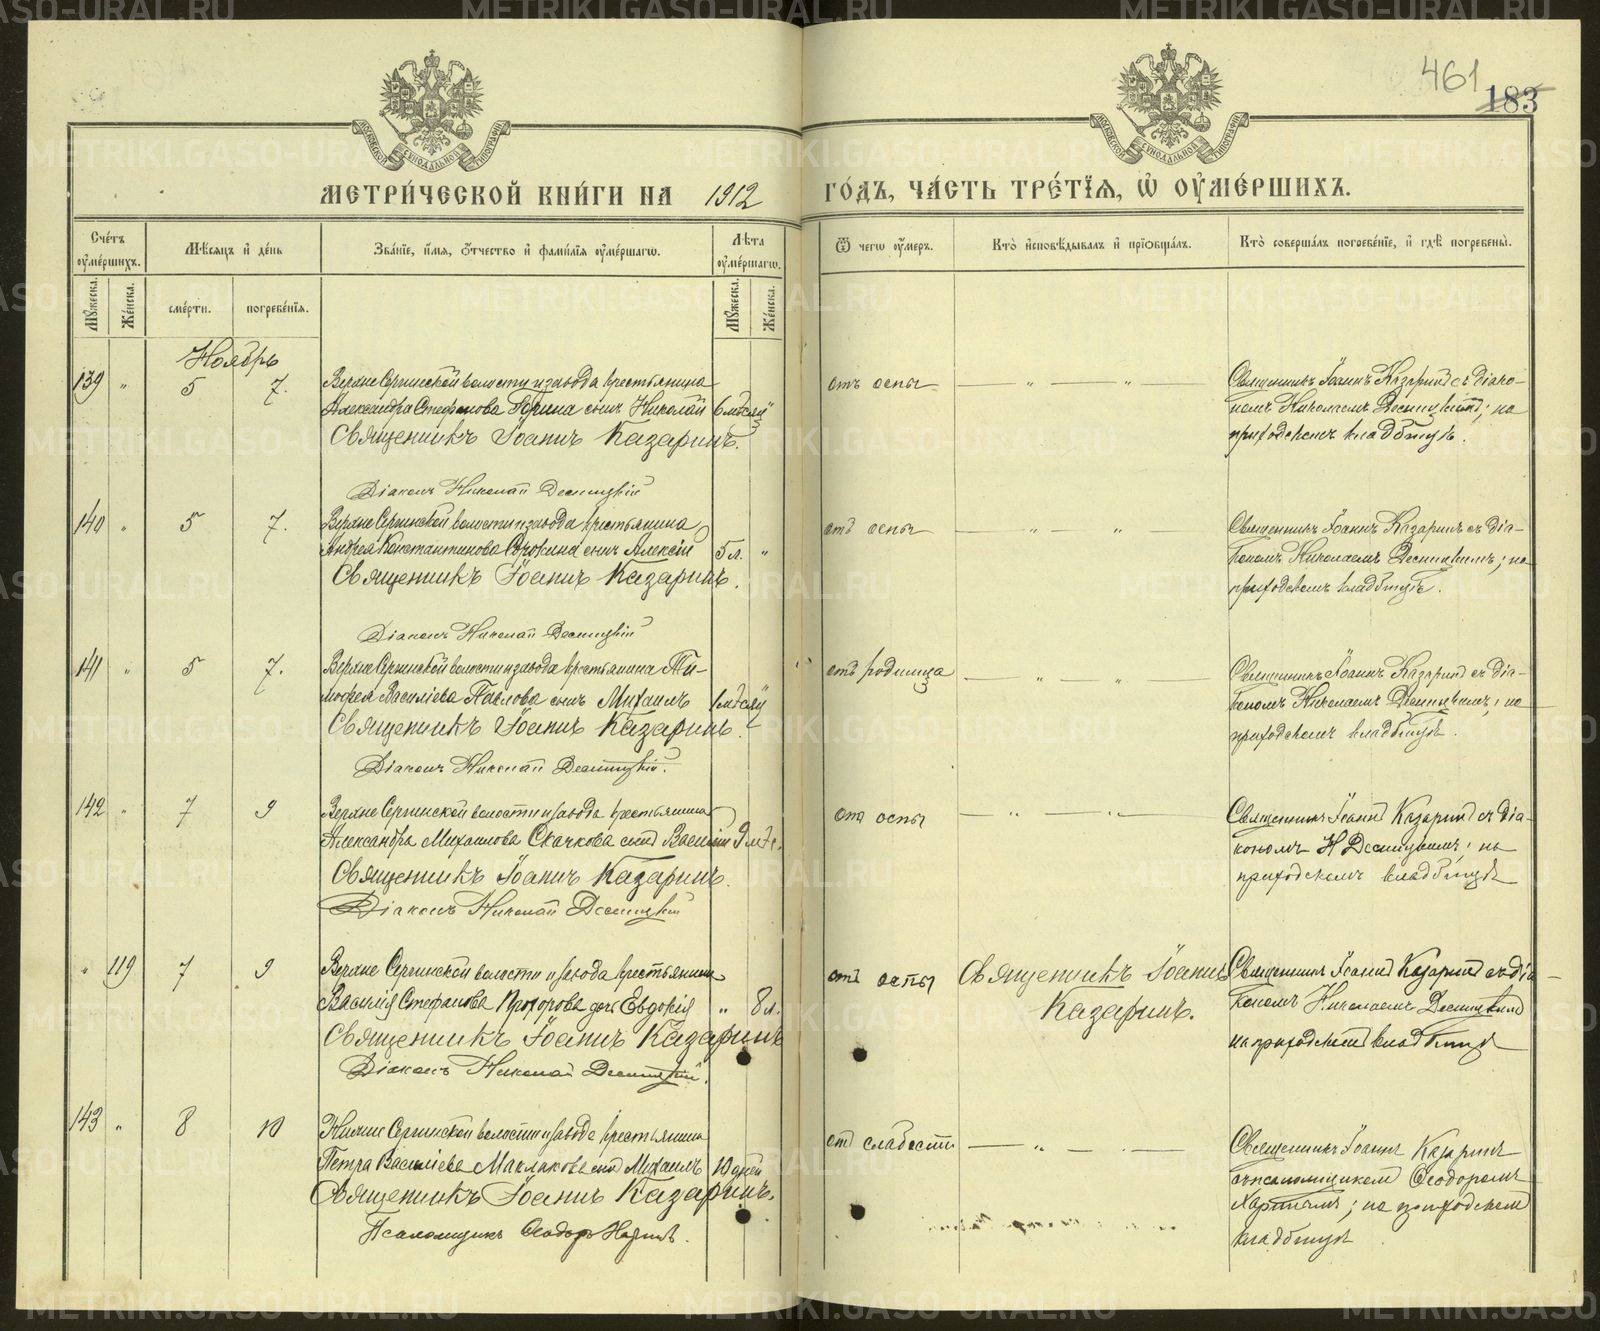 461
183
МОСКОВСКОЙ СѴНОДАЛЬНОЙ ТИПОГРАФІИ
МОСКОВСКОЙ СѴНОДАЛЬНОЙ ТИПОГРАФІИ
МЕТРИ́ЧЕСКОЙ КНИ́ГИ НА 1912 ГО́ДЪ, ЧА́СТЬ ТРЕ́ТЇѦ, Ѡ҆ ОУ҆МЕ́РШИХЪ.
Счétъ оу҆ме́ршихъ.
Мѣ́сяцъ и҆ де́нь
Зва́нїе, и҆́мѧ, ѻ҆́тчество и҆ фами́лїѧ оу҆ме́ршагѡ.
Лѣ́та оу҆ме́ршагѡ.
Ѿ чегѡ̀ оу҆́меръ.
Кто̀ и҆сповѣ́дывалъ и҆ прїѡбща́лъ.
Кто̀ соверша́лъ погребе́нїе, и҆ гдѣ̀ погребены̀.
Мꙋ́жеска.
Же́нска.
сме́рти.
погребе́нїѧ.
Мꙋ́жеска.
Же́нска.
Ноябрь
139 " 5 7. Верхне Сергинской волости и завода крестьянина
Александра Стефанова сынъ Николай 6 мѣсяц
Священникъ Іоаннъ Казаринъ.
Діаконъ Николай Десницкій
отъ оспы — " — " —
Священникъ Іоаннъ Казаринъ съ діако-
номъ Николаемъ Десницкимъ; на
приходскомъ кладбищѣ.
140 " 5 7. Верхне Сергинской волости и завода крестьянина
Андрея Константинова сынъ Алексій 5 л. "
Священникъ Іоаннъ Казаринъ.
Діаконъ Николай Десницкій
отъ оспы — " — " —
Священникъ Іоаннъ Казаринъ съ діа-
кономъ Николаемъ Десницкимъ; на
приходскомъ кладбищѣ.
141 " 5 7. Верхне Сергинской волости и завода крестьянина Ти-
мофея Василіева Павлова сынъ Михаилъ 1 мѣсяц
Священникъ Іоаннъ Казаринъ.
Діаконъ Николай Десницкій.
отъ родимца — " — " —
Священникъ Іоаннъ Казаринъ съ діа-
кономъ Николаемъ Десницкимъ; на
приходскомъ кладбищѣ.
142 " 7 9 Верхне Сергинской волости и завода крестьянина
Александра Михаилова Скачкова сынъ Василій 9 мѣс.
Священникъ Іоаннъ Казаринъ.
Діаконъ Николай Десницкій
отъ оспы — " — " —
Священникъ Іоаннъ Казаринъ съ діа-
кономъ Н Десницкимъ; на
приходскомъ кладбищѣ
" 119 7 9 Верхне Сергинской волости и завода крестьянина
Василія Стефанова Прохорова дочь Евдокія " 8 л.
Священникъ Іоаннъ Казаринъ
Діаконъ Николай Десницкій.
отъ оспы
Священникъ Іоаннъ
Казаринъ.
Священникъ Іоаннъ Казаринъ съ діа-
кономъ Николаемъ Десницкимъ
на приходскомъ кладбищѣ
143 " 8 10 Нижне Сергинской волости и завода крестьянина
Петра Василіева Маклакова сынъ Михаилъ 10 дней
Священникъ Іоаннъ Казаринъ.
Псаломщикъ Ѳеодоръ
отъ слабости — " —
Священникъ Іоаннъ Казаринъ
съ псаломщикомъ Ѳеодоромъ
; на приходскомъ
кладбищѣ
METRIKI.GASO-URAL.RU